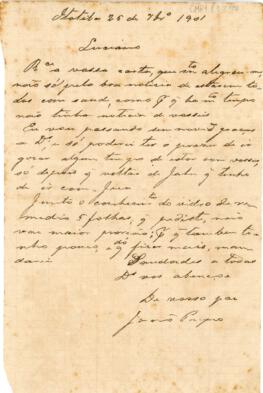 Itatiba 25 de 7brº 1901
Luciano
Rcª a vossa carta, que mtº alegrou-me,
não só pela boa noticia de estarem to-
dos com saude, como q ha mtº tempo
não tinha noticia de vosseis
Eu vou passando sem nov. graças
a Ds, e só poderei ter o prazer de ir
gozar algum tempo de estar com vosseis,
só depois q voltar de Jahu q tenho
de ir com
Junto o conhecimento do vidro de re-
medio 5 folhas, q pediste, não
vae maior porção, q tambem te-
nho pouco, qdo fizer mais, man-
darei
Saudades a todos
Ds vos abençoe
De vosso pae